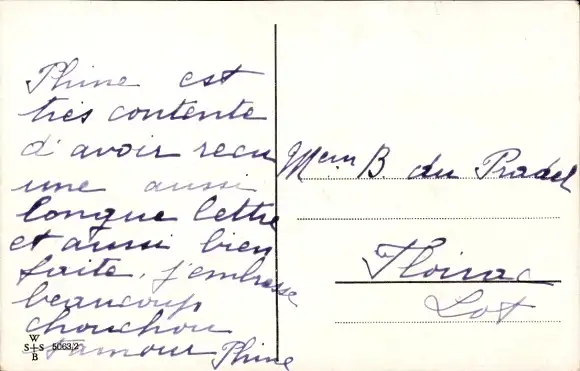 Phine est
très contente
d'avoir recu
une aussi
longue lettre
et aussi bien
faite, j'embrasse
beaucoup
chouchou
d'amour Phine
Mem B. du Pradel
Floirac
Lot
W
S+S 5063/2
B